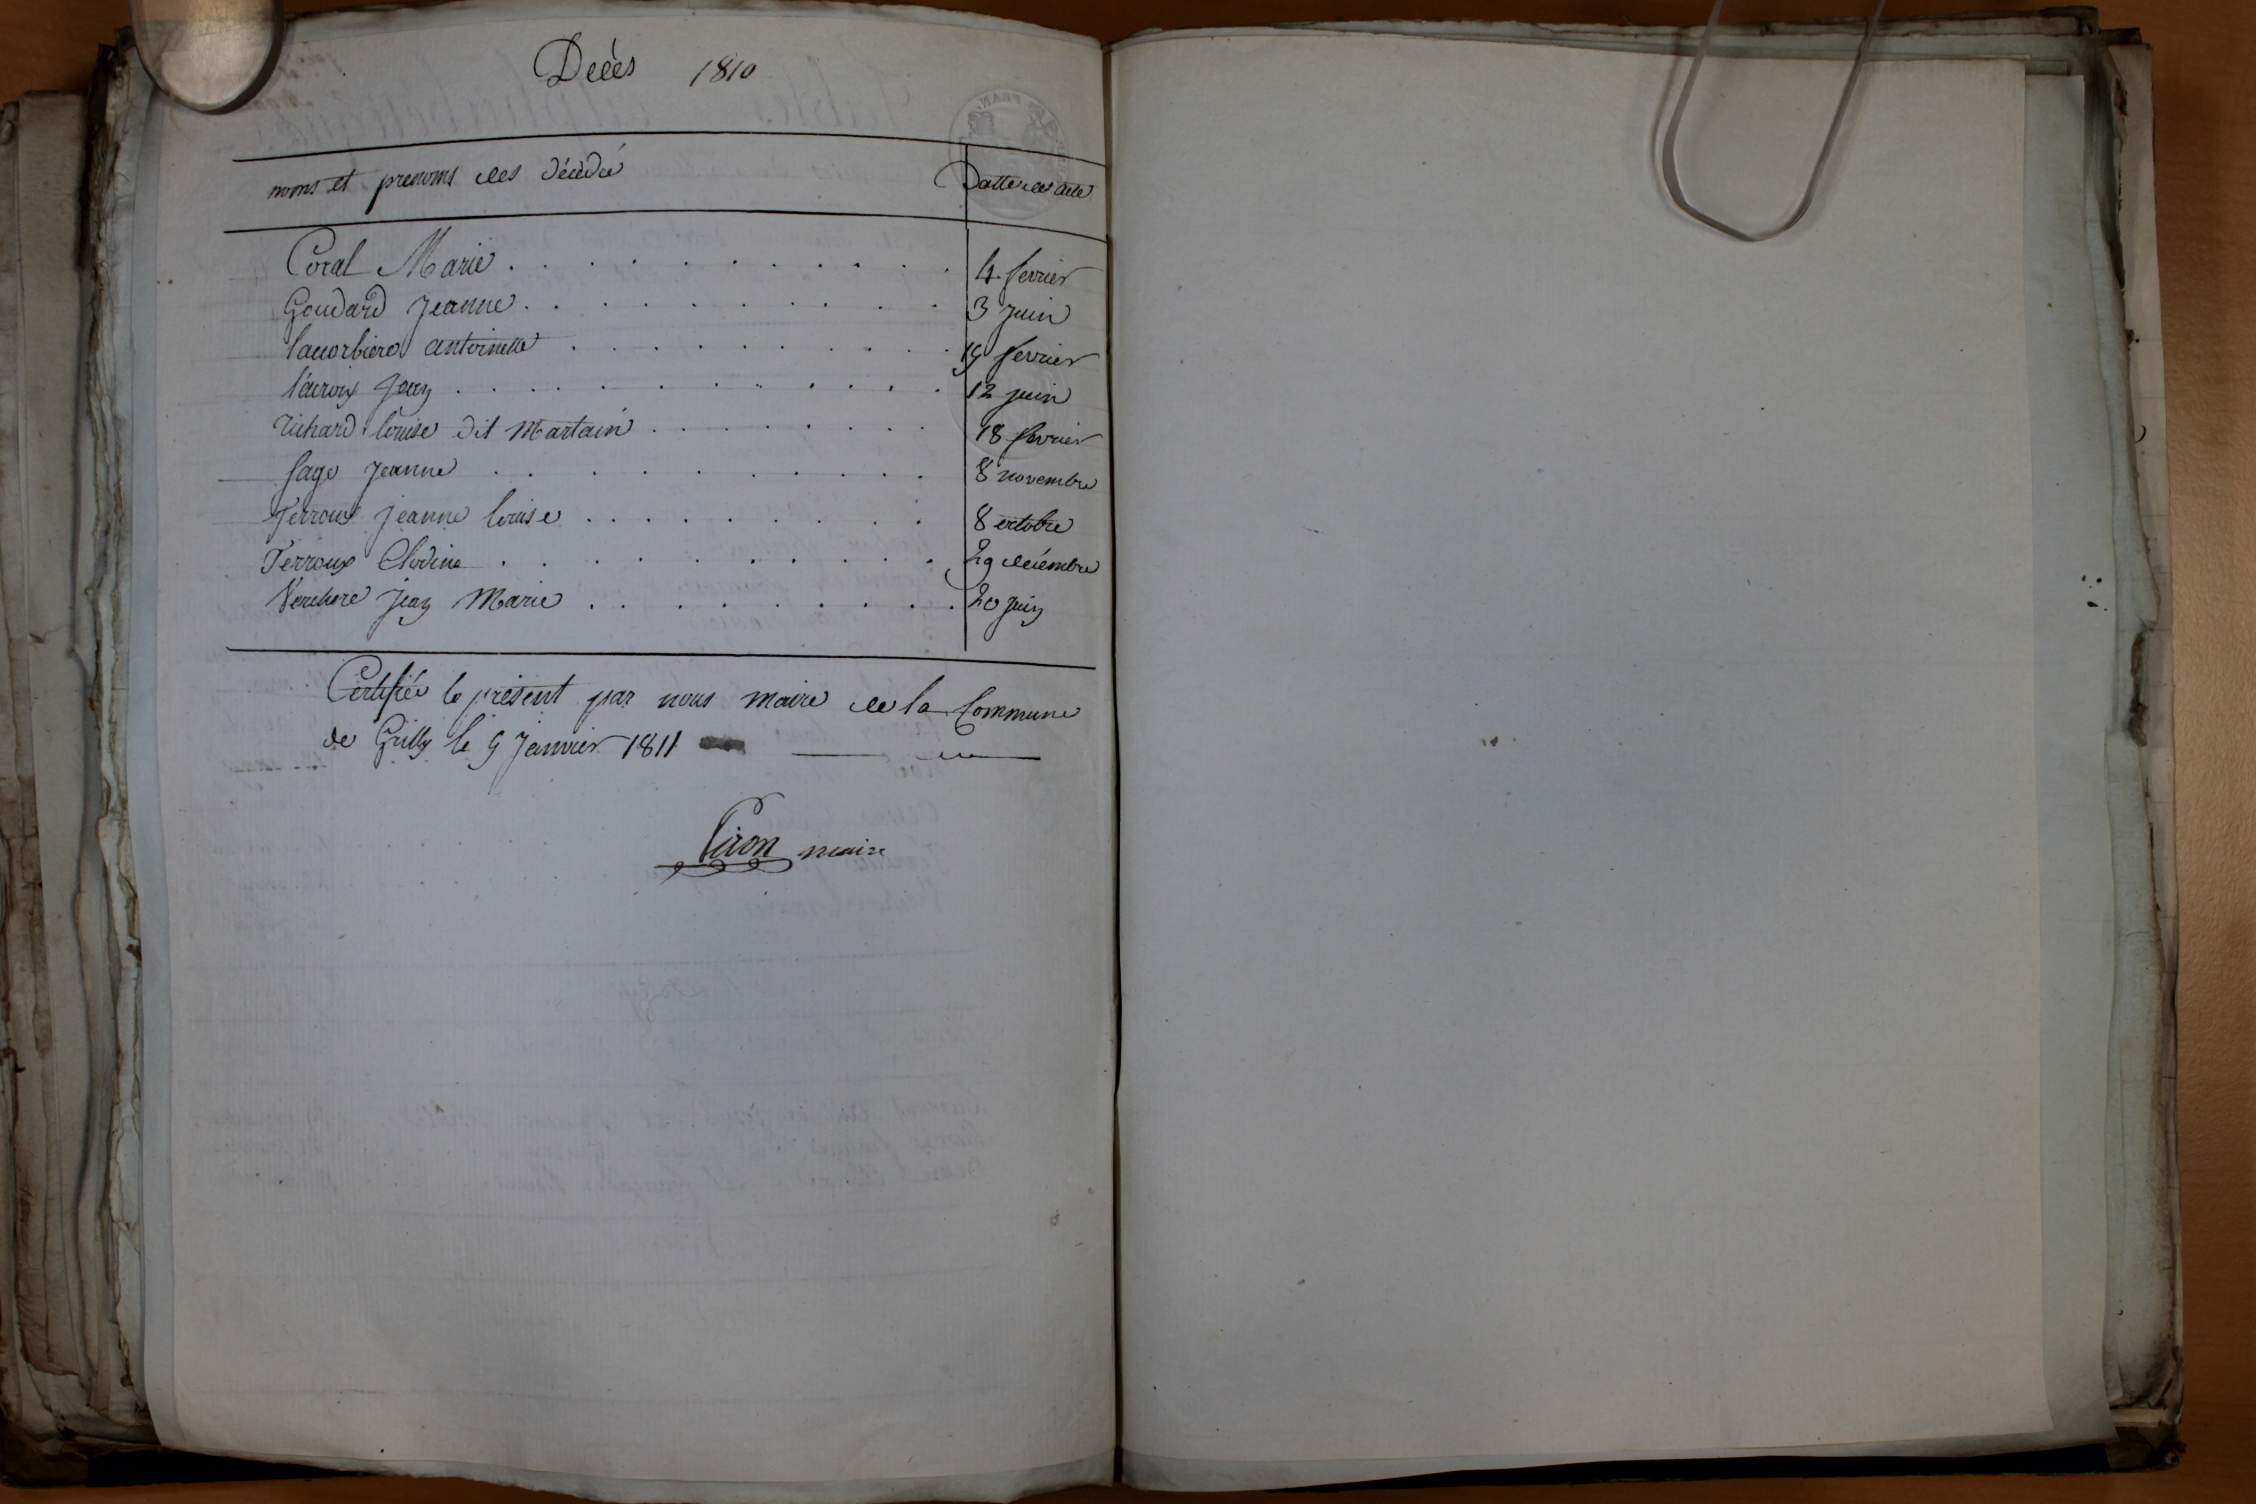 Décès 1810
noms et prenoms des décédé Datte des acte
Coral Marie 4 fevrier
Goudard Jeanne 3 juin
lacorbiere antoinette 19 fevrier
lacroix Jean 12 juin
Richard louise dit Martain 18 fevrier
Sage Jeanne 8 novembre
Terroux Jeanne louise 8 octobre
Terroux Clodine 29 décémbre
Verchere Jean Marie 20 juin
Certifiée le présent par nous maire de la Commune
de Grilly le 9 Janvier 1811
Giron maire